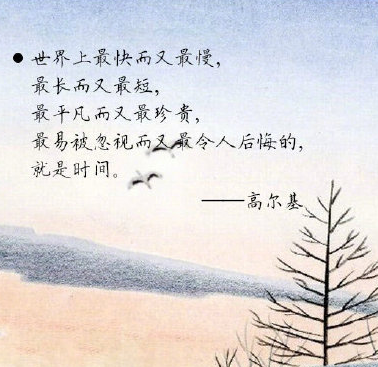 ● 世界上最快而又最慢，
最长而又最短，
最平凡而又最珍贵，
最易被忽视而又最令人后悔的，
就是时间。
——高尔基